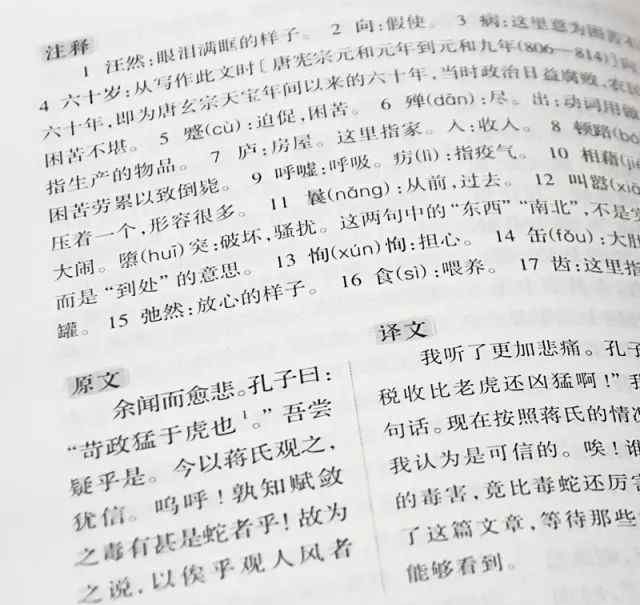 注释
1 汪然：眼泪满眶的样子。 2 向：假使。 3 病：这里意为困苦不
4 六十岁：从写作此文时［唐宪宗元和元年到元和九年（806—814）］向
六十年，即为唐玄宗天宝年间以来的六十年，当时政治日益腐败，农民
困苦不堪。 5 蹙(cù)：迫促，困苦。 6 殚(dān)：尽。出：动词用做
指生产的物品。 7 庐：房屋。这里指家。入：收入。 8 顿踣(bó
困苦劳累以致倒毙。 9 呼嘘：呼吸。疠(lì)：指疫气。 10 相藉(jiè
压着一个，形容很多。 11 曩(nǎng)：从前，过去。 12 叫嚣(xiāo
大闹。隳(huī)突：破坏，骚扰。这两句中的“东西”“南北”，不是实
而是“到处”的意思。 13 恂(xún)恂：担心。 14 缶(fǒu)：大肚
罐。 15 弛然：放心的样子。 16 食(sì)：喂养。 17 齿：这里指
原文
余闻而愈悲。孔子曰：
“苛政猛于虎也1。”吾尝
疑乎是。今以蒋氏观之，
犹信。呜呼！孰知赋敛
之毒有甚是蛇者乎！故为
之说，以俟乎观人风者
译文
我听了更加悲痛。孔子
税收比老虎还凶猛啊！”我
句话。现在按照蒋氏的情况
我认为是可信的。唉！谁
的毒害，竟比毒蛇还厉害
了这篇文章，等待那些
能够看到。